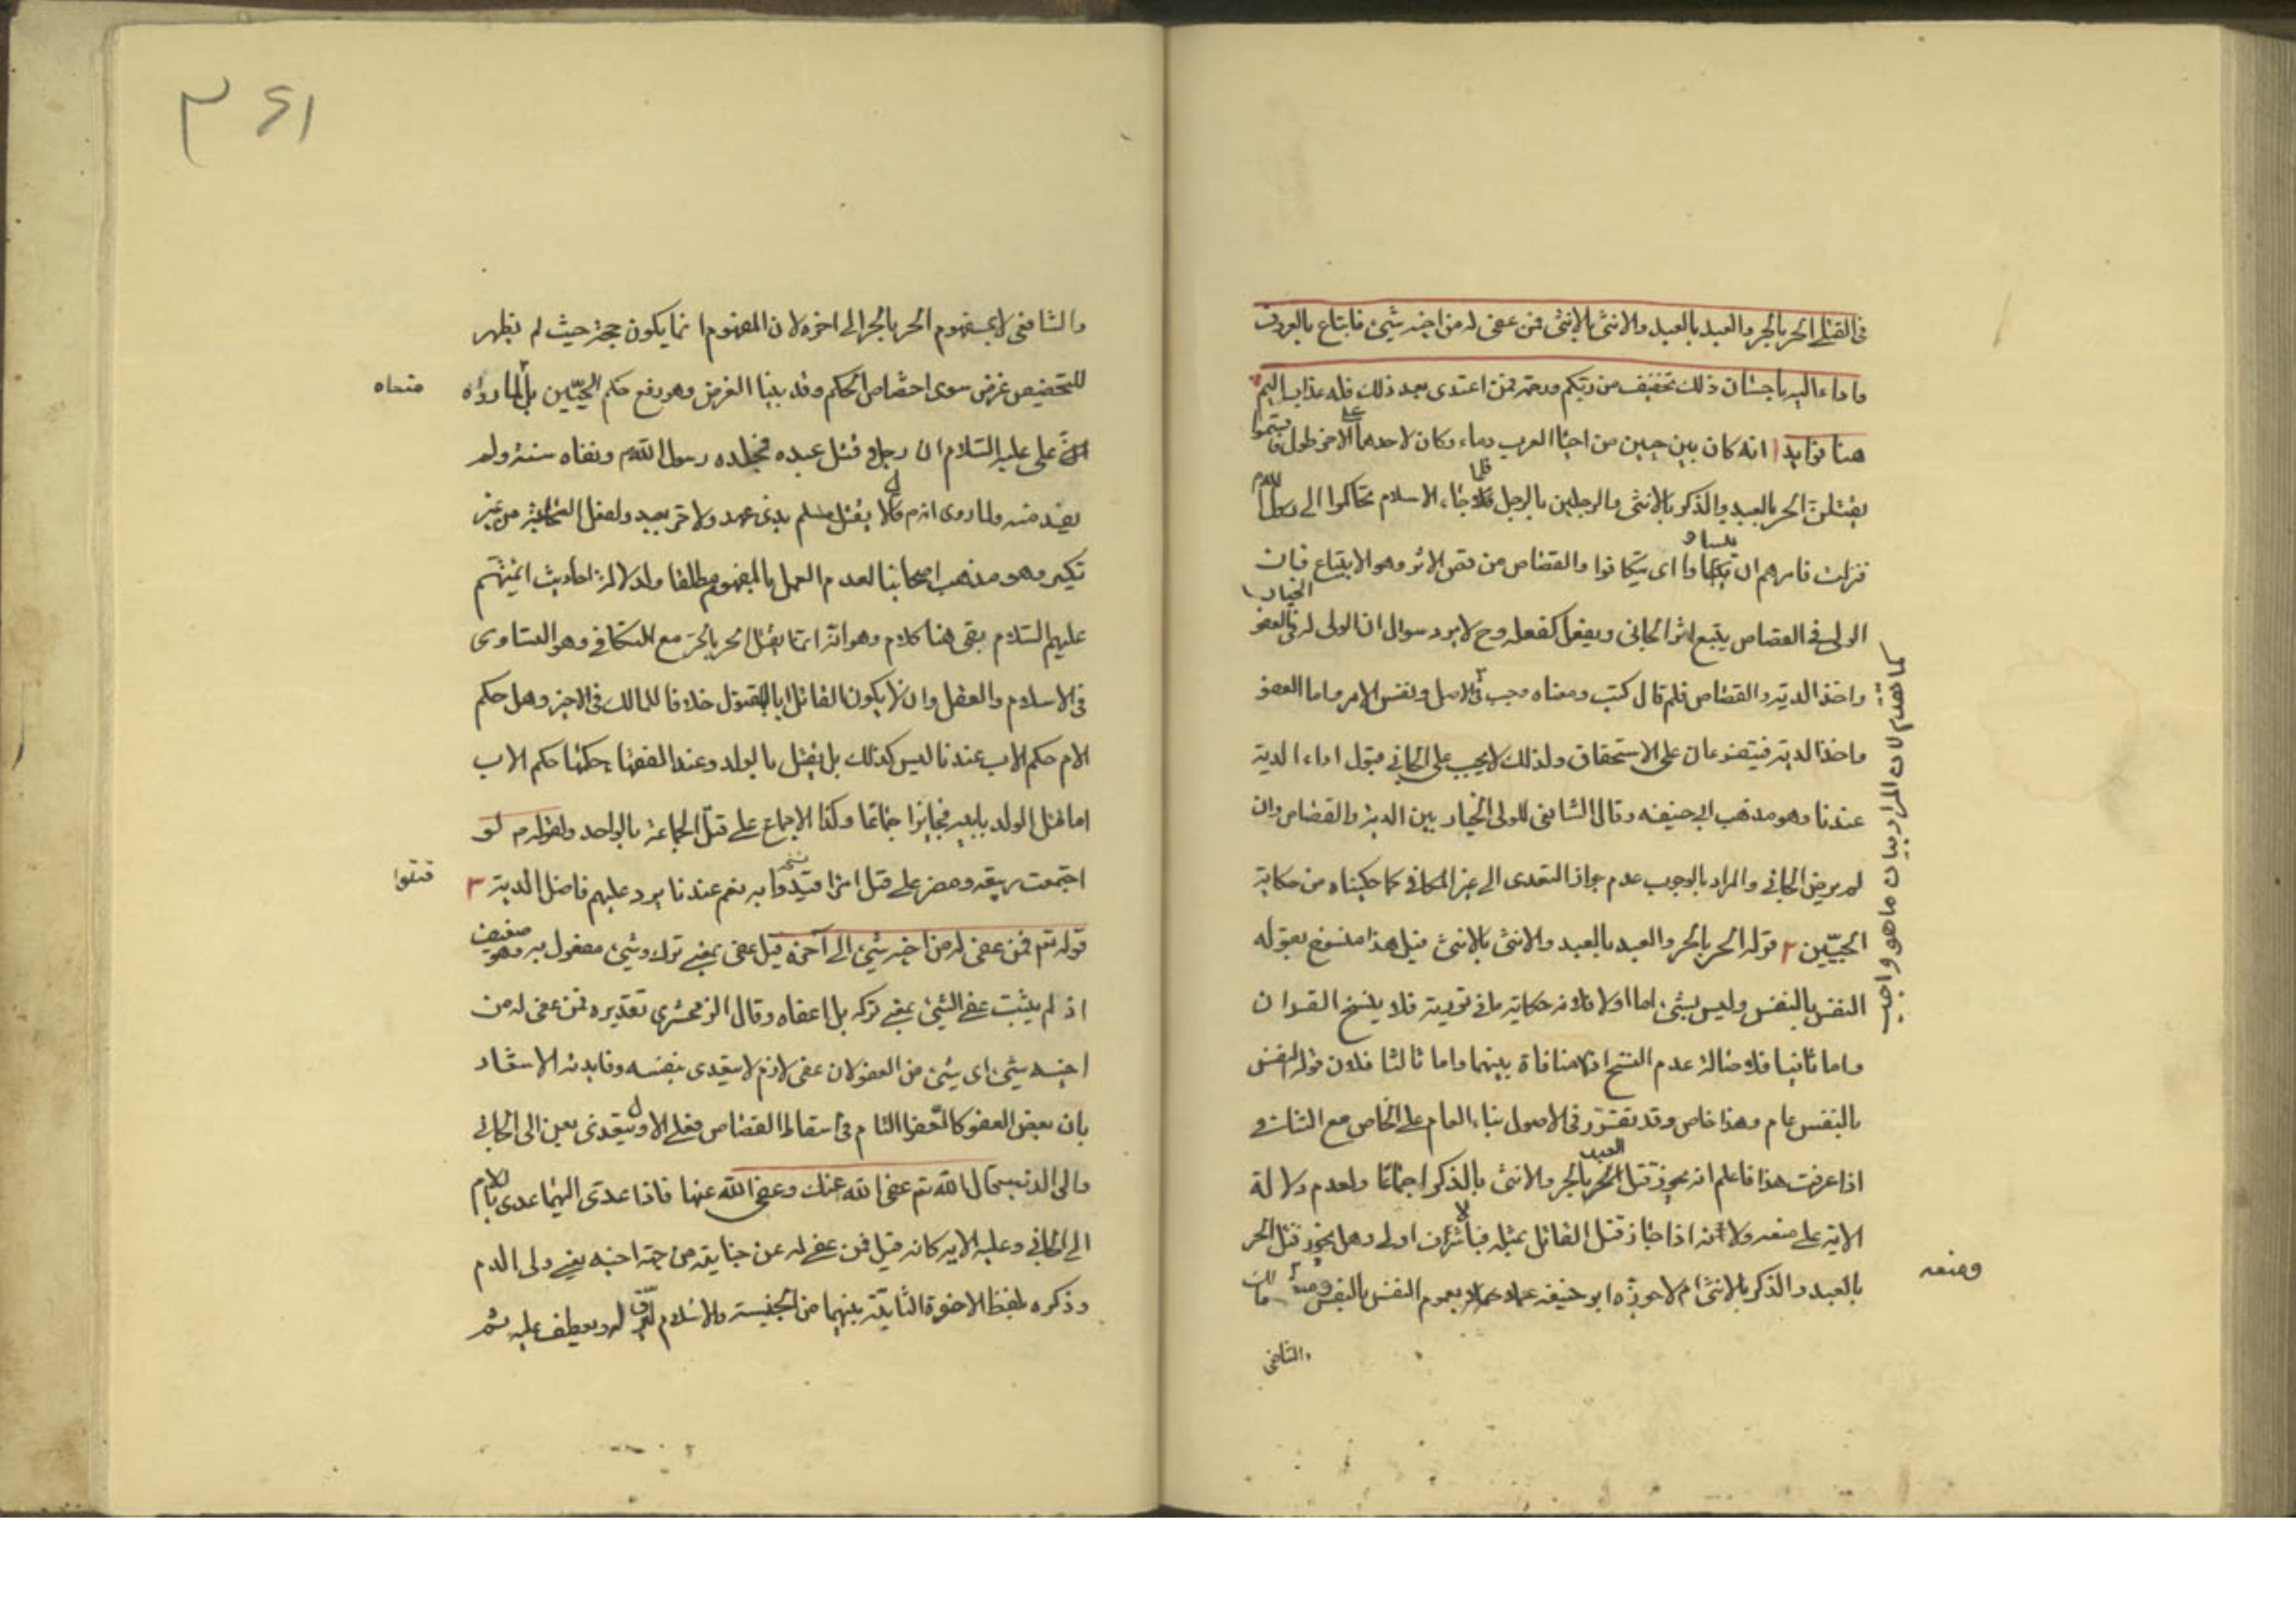 في القتلى الحر بالحر والعبد بالعبد والانثى بالانثى فمن عفى له من اخيه شيئ فاتباع بالمعروف
واداء اليه باحسان ذلك تخفيف من ربكم ورحمة فمن اعتدى بعد ذلك فله عذاب اليم
هنا فوايد ١ انه كان بين حيين من احياء العرب دماء وكان لاحدهما على الاخر طول فاقسموا
ليقتلن الحر بالعبد والذكر بالانثى والرجلين بالرجل فلما جاء الاسلام تحاكموا الى رسول الله ص
فنزلت فامرهم ان يتساووا اى يتكافوا والقصاص من قص الاثر وهو الاتباع فان
الولى في القصاص يتبع اثر الجانى ويفعل كفعله وح لا يرد سوال ان الولى له الخيار في العفو
واخذ الدية والقصاص فلم قال كتب ومعناه وجب في الاصل ونفس الامر واما العفو
واخذ الدية فيتفرعان على الاستحقاق ولذلك لا يجب على الجانى قبول اداء الدية
عندنا وهو مذهب ابي حنيفه وقال الشافعى للولى الخيار بين الدية والقصاص وان
لم يرض الجاني والمراد بالوجوب عدم جواز التعدى الى غير المكافي كما حكيناه من حكاية
الحيّين ٢ قوله الحر بالحر والعبد بالعبد والانثى بالانثى قيل هذا منسوخ بقوله
النفس بالنفس وليس بشئ اما اولا فلانه حكاية ما في تورية فلا ينسخ القران
واما ثانيا فلاصالة عدم النسخ اذ لا منافاة بينهما واما ثالثا فلان قوله النفس
بالنفس عام وهذا خاص وقد تقرر في الاصول بناء العام على الخاص مع التنافي
اذا عرفت هذا فاعلم انه يجوز قتل العبد بالحر والانثى بالذكر اجماعا ولعدم دلالة
الاية على منعه ولانه اذا جاز قتل القاتل بمثله فبالاشرف اولى وهل يجوز قتل الحر
بالعبد والذكر بالانثى ام لا جوزه ابو حنيفه بعموم النفس بالنفس ومنعه مالك
والشافعى
كما تقدم لان المراد بيان ما هو واجب
ومنعه
٣٤١
والشافعى لا بمفهوم الحر بالحر الى اخره لان المفهوم انما يكون حجة حيث لم يظهر
للتخصيص غرض سوى اختصاص الحكم وقد بينا الغرض وهو رفع حكم الحيّين بل لما رواه
عن على عليه السلام ان رجلا قتل عبده فجلده رسول الله ص ونفاه سنة ولم
يقده منه ولما روى انه ص قال لا يقتل مسلم بذى عهد ولا حر بعبد ولفعل الصحابة من غير
نكير وهو مذهب اصحابنا لعدم العمل بالمفهوم مطلقا ولدلالة احاديث ائمتهم
عليهم السلام بقى هنا كلام وهو انه انما يقتل الحر بالحر مع التكافي وهو التساوى
في الاسلام والعقل وان لا يكون القاتل ابا للمقتول خلافا لمالك في الاخير وهل حكم
الام حكم الاب عندنا ليس كذلك بل يقتل بالولد وعند الفقهاء حكمها حكم الاب
اما قتل الولد بابيه فجايز اجماعا وكذا الاجماع على قتل الجماعة بالواحد ولقوله ص لو
اجتمعت ربيعه ومضر على قتل امرء قيدوا به نعم عندنا يرد عليهم فاضل الدية ٣
قوله تع فمن عفى له من اخيه شيئ الى آخره قيل عفى بمعنى ترك وشيئ مفعول به وهو ضعيف
اذ لم يثبت عفى الشيئ بمعنى تركه بل اعفاه وقال الزمخشرى تقديره فمن عفى له من
اخيه شيئ اى شيئ من العفو لان عفى لازم لا يتعدى بنفسه وفايدته الاشعار
بان بعض العفو كالعفو التام في اسقاط القصاص فعلى الاول يتعدى بعن الى الجاني
والى الذنب قال الله تع عفى الله عنك وعفى الله عنها فاذا عدى اليهما عدى باللام
الى الجاني وعليه الاية كانه قيل فمن عفى له عن جنايته من جهة اخيه يعنى ولى الدم
وذكره بلفظ الاخوة الثابتة بينهما من الجنسية والاسلام ليرق له ويعطف عليه ثم